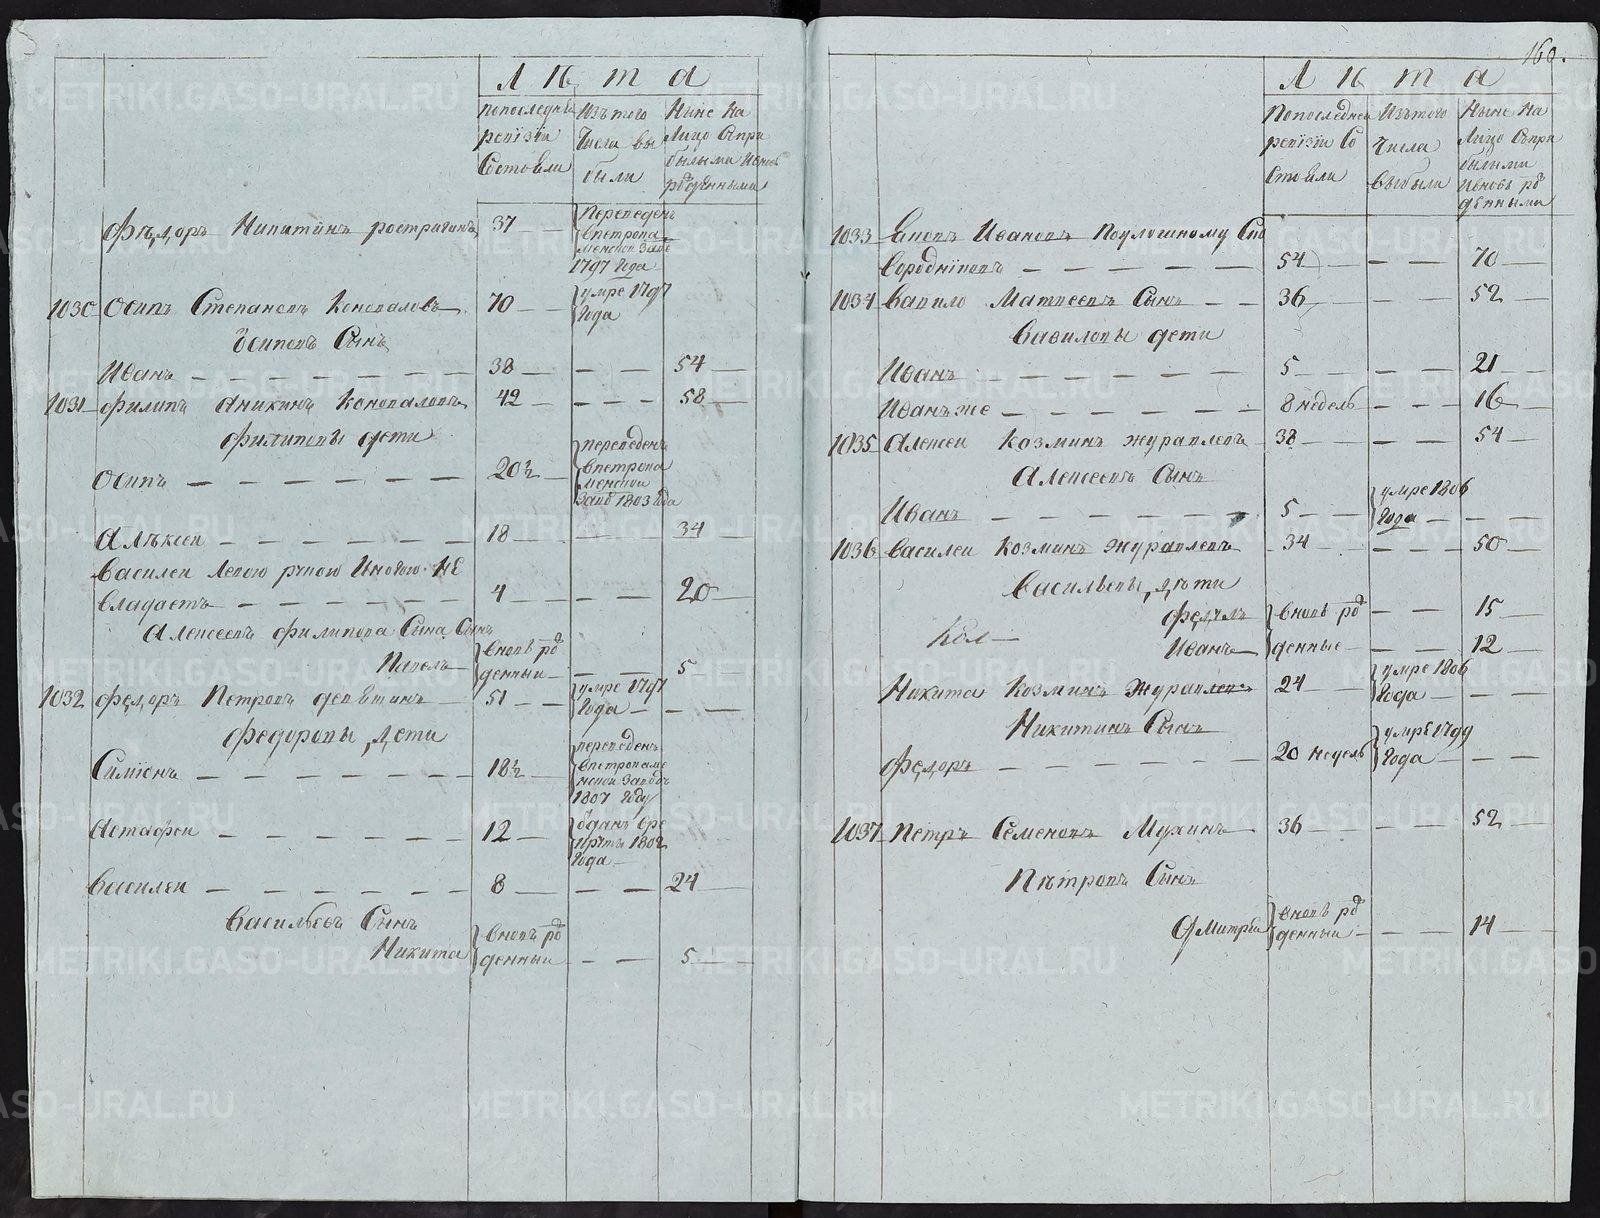 Л Ѣ т а
Попоследнѣи Изъ того Ныне На
ревизїи Числа вы Лицо Съпри
Состояли были былыми Ивновь
рожденными
Фѣдоръ Никитинъ 37 Переведенъ
впетрока
менской заво
1797 года
1030 Осипъ Степановъ Коноваловъ 70 умре 1797
года
Осиповъ Сынъ
Иванъ 38 54
1031 Филипъ Аникинъ Коноваловъ 42 58
Филиповы дети
Осипъ 20 ½ переведенъ
впетрока
менской
заво 1803 года
Алѣксеи 18 34
Василеи Левою рукою Иногою НЕ
Владаетъ 4 20
Алексеевъ Филипова Сына Сынъ
Павелъ вновь рож
денныи 5
1032 Федоръ Петровъ девяткинъ 51 умре 1797
года
Федоровы дети
Симїонъ 18 ½ переведенъ
впетрокаме
нской завод
1807 году
Астафеи 12 одданъ вре
круты 1802
года
Василеи 8 24
Васильевъ Сынъ
Никита вновь рож
денныи 5
160.
Л Ѣ т а
Попоследнеи Изътого Ныне На
ревизїи Со Числа Лицо Съпри
стояли выбыли былыми
Ивновь рож
денными
1033 Ивановъ Поулошному Ско
вородниковъ 54 70
1034 Вавило Матвеевъ Сынъ 36 52
Вавиловы дети
Иванъ 5 21
Иванъ же 8 недель 16
1035 Алексеи Козминъ журавлевъ 38 54
Алексеевъ Сынъ
Иванъ 5 умре 1806
года
1036 Василеи Козминъ журавлевъ 34 50
Васильевы дѣти
вновь рож 15
Иванъ денные 12
Никита Козминъ Журавлевъ 24 умре 1806
года
Никитинъ Сынъ
Федоръ 20 недель умре 1799
года
1037 Петръ Семеновъ Мухинъ 36 52
Пѣтровъ Сынъ
Дмитреи вновь рож
денныи 14
METRIKI.GASO-URAL.RU